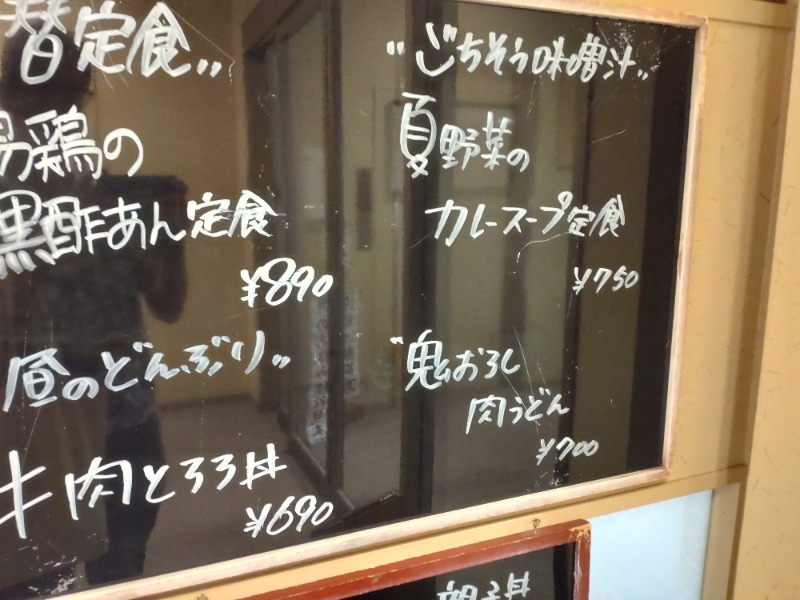 替定食〃
揚鶏の
黒酢あん定食
¥890
昼のどんぶり〃
牛肉とろろ丼
¥690
〃ごちそう味噌汁〃
夏野菜の
カレースープ定食
¥750
〃鬼おろし
肉うどん
¥700
親子丼